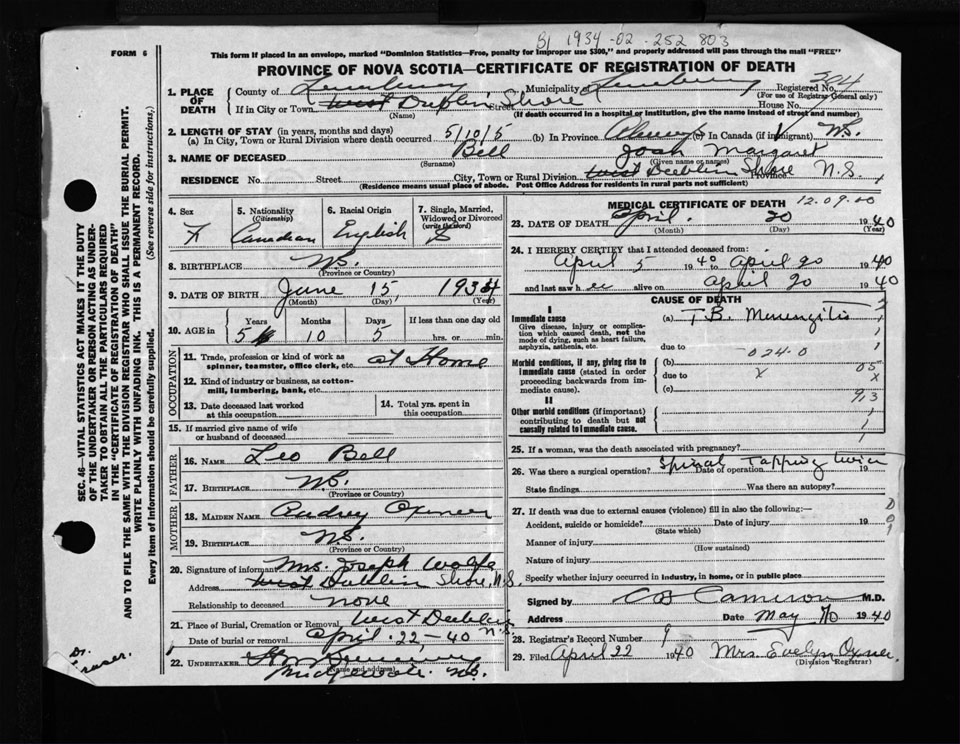 1934-02-252 803
FORM 6
This form if placed in an envelope, marked "Dominion Statistics—Free, penalty for improper use $300," and properly addressed will pass through the mail "FREE"
PROVINCE OF NOVA SCOTIA—CERTIFICATE OF REGISTRATION OF DEATH
1. PLACE OF DEATH
County of Lunenburg Municipality of Lunenburg Registered No. 304
(For use of Registrar General only)
If in City or Town West Dublin Shore Street House No.
(Name) (If death occurred in a hospital or institution, give the name instead of street and number)
2. LENGTH OF STAY (in years, months and days)
(a) In City, Town or Rural Division where death occurred 5/10/5 (b) In Province Always (c) In Canada (if immigrant) N.S.
3. NAME OF DECEASED Bell Joan Margaret
(Surname) (Given name or names)
RESIDENCE No. Street City, Town or Rural Division West Dublin Shore Province N.S.
(Residence means usual place of abode. Post Office Address for residents in rural parts not sufficient)
4. Sex F
5. Nationality (Citizenship) Canadian
6. Racial Origin English
7. Single, Married, Widowed or Divorced (write the word) S
8. BIRTHPLACE N.S.
(Province or Country)
9. DATE OF BIRTH June 15, 1934
(Month) (Day) (Year)
10. AGE in Years Months Days If less than one day old
5 10 5 hrs. or min.
OCCUPATION
11. Trade, profession or kind of work as spinner, teamster, office clerk, etc. at Home
12. Kind of industry or business, as cotton-mill, lumbering, bank, etc.
13. Date deceased last worked at this occupation
14. Total yrs. spent in this occupation
15. If married give name of wife or husband of deceased
FATHER
16. NAME Leo Bell
17. BIRTHPLACE N.S.
(Province or Country)
MOTHER
18. MAIDEN NAME Audrey Oxner
19. BIRTHPLACE N.S.
(Province or Country)
20. Signature of informant Mrs. Joseph Wolfe
Address West Dublin Shore, N.S.
Relationship to deceased none
21. Place of Burial, Cremation or Removal West Dublin N.S.
Date of burial or removal April 22-40
22. UNDERTAKER
(Name and address)
MEDICAL CERTIFICATE OF DEATH 12.09.00
23. DATE OF DEATH April 20 1940
(Month) (Day) (Year)
24. I HEREBY CERTIFY that I attended deceased from:
April 5 1940 to April 20 1940
and last saw her alive on April 20 1940
CAUSE OF DEATH
I
Immediate cause (a) T.B. Meningitis
Give disease, injury or complication which caused death, not the mode of dying, such as heart failure, asphyxia, asthenia, etc. due to
024.0
Morbid conditions, if any, giving rise to immediate cause (stated in order proceeding backwards from immediate cause). (b) due to x (c)
05
x
93
II
Other morbid conditions (if important) contributing to death but not causally related to immediate cause.
25. If a woman, was the death associated with pregnancy?
26. Was there a surgical operation? Spinal Tapping twice Date of operation 19
State findings Was there an autopsy?
27. If death was due to external causes (violence) fill in also the following:—
Accident, suicide or homicide? Date of injury 19
(State which)
Manner of injury
(How sustained)
Nature of injury
Specify whether injury occurred in industry, in home, or in public place
Signed by C B Cameron M.D.
Address Date May 10 1940
28. Registrar's Record Number 9
29. Filed April 22 1940 Mrs. Evelyn Oxner.
(Division Registrar)
SEC. 46—VITAL STATISTICS ACT MAKES IT THE DUTY
OF THE UNDERTAKER OR PERSON ACTING AS UNDER-
TAKER TO OBTAIN ALL THE PARTICULARS REQUIRED
IN THE "CERTIFICATE OF REGISTRATION OF DEATH"
AND TO FILE THE SAME WITH THE DIVISION REGISTRAR WHO SHALL ISSUE THE BURIAL PERMIT.
WRITE PLAINLY WITH UNFADING INK. THIS IS A PERMANENT RECORD.
Every item of information should be carefully supplied. (See reverse side for instructions.)
Dr.